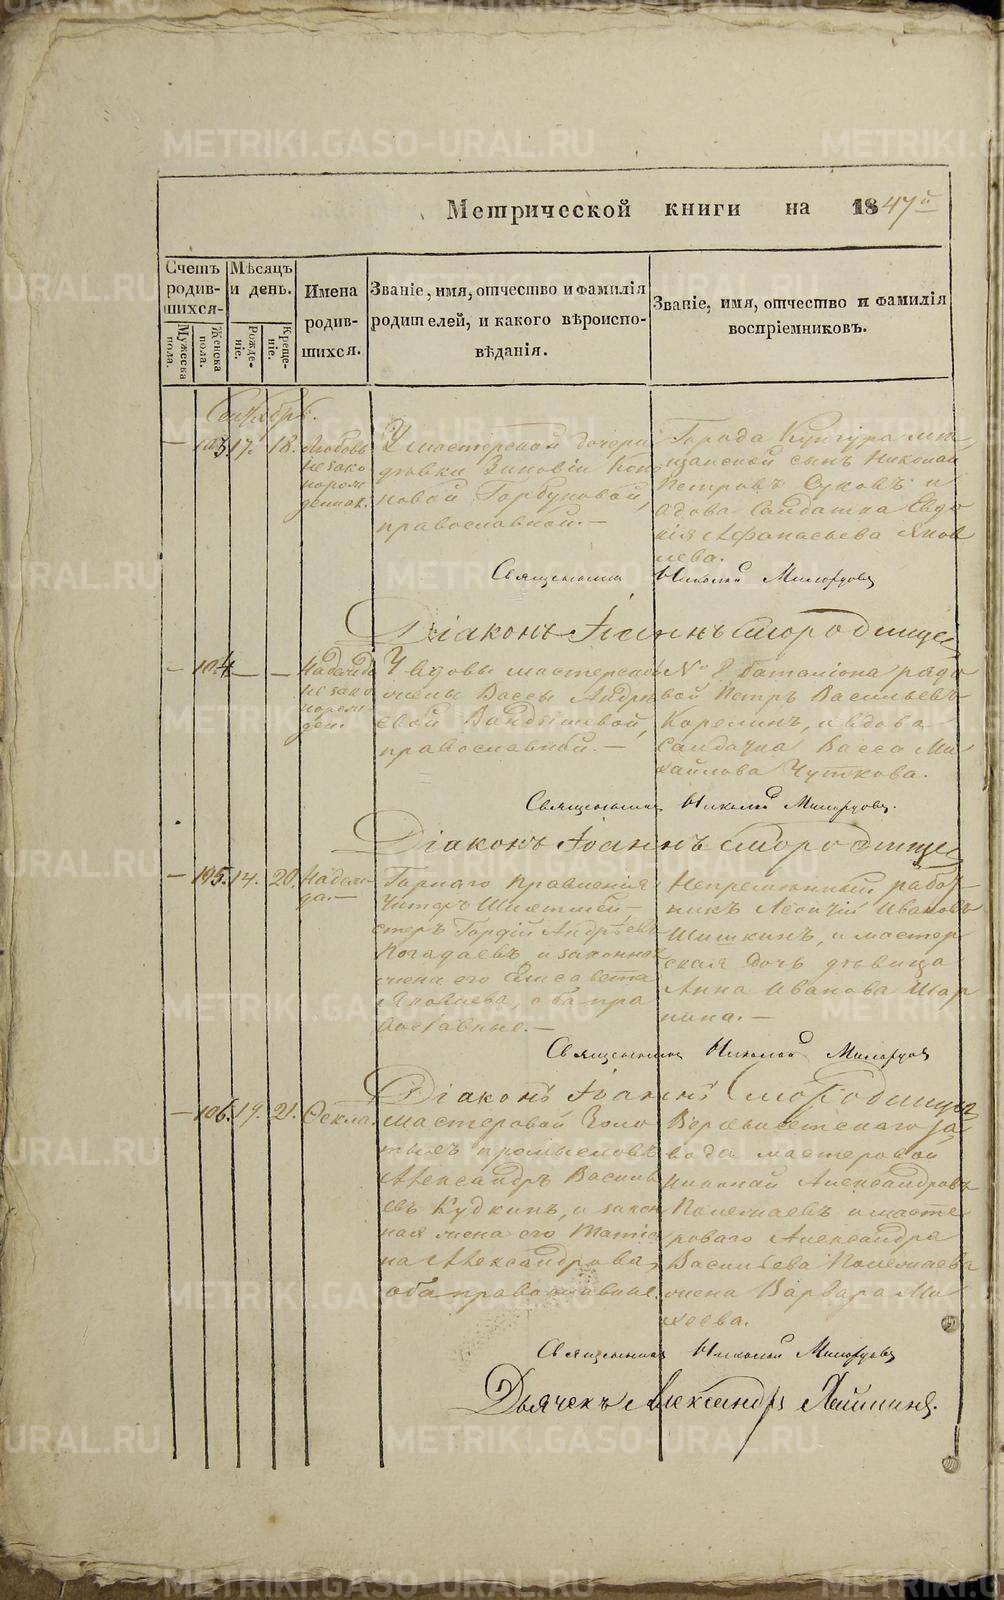 Метрической книги на 1847й
Счетъ родив-шихся.
Мужеска пола.
Женска пола.
Мѣсяцъ и день.
Рожде-ніе.
Креще-ніе.
Имена родив-шихся.
Званіе, имя, отчество и фамилія
родителей, и какого вѣроиспо-
вѣданія.
Званіе, имя, отчество и фамилія
воспріемниковъ.
Сентябрь.
— 103. 17. 18. Любовь
незако
норож
денная.
У мастерской дочери
дѣвки Зиновіи
Горбуновой,
православной. —
Города Кунгура мѣ-
щанской сынъ Николай
Петровъ Суковъ и
вдова Солдатка Евдо
кія Афанасьева Яков
лева.
Священникъ Николай
Діаконъ Іоаннъ Смородинцевъ
— 104. — — Надежда
незако
норож
ден.
У вдовы мастерской
жены Вассы Андре
евой
православной. —
№ 8 баталіона рядо
вой Петръ Васильевъ
Корелинъ, и вдова
Солдатка Васса Ми
хайлова Чуткова.
Священникъ Николай
Діаконъ Іоаннъ Смородинцевъ
— 105. 14. 20. Надеж-
да. —
Горнаго Правленія
Гордій Андреевъ
и законная
жена его Елисавета
Яковлева, оба пра
вославные. —
Непремѣнный работ-
никъ Иванов
Шишкинъ, и мастер
ская дочь дѣвица
Анна Иванова Шар
нина. —
Священникъ Николай
Діаконъ Іоаннъ Смородинцевъ
— 106. 19. 21. Ѳекла.
Мастеровой Золо
тыхъ промысловъ
Александръ Василь
евъ Кудкинъ, и закон
ная жена его Татіа
на Александрова,
оба православные.
Верхъисетскаго за
вода мастеровой
Николай Александровъ
и масте
роваго Александра
Васильева
жена Варвара Ми
хеева.
Священникъ Николай
Дьячекъ Александръ
METRIKI.GASO-URAL.RU